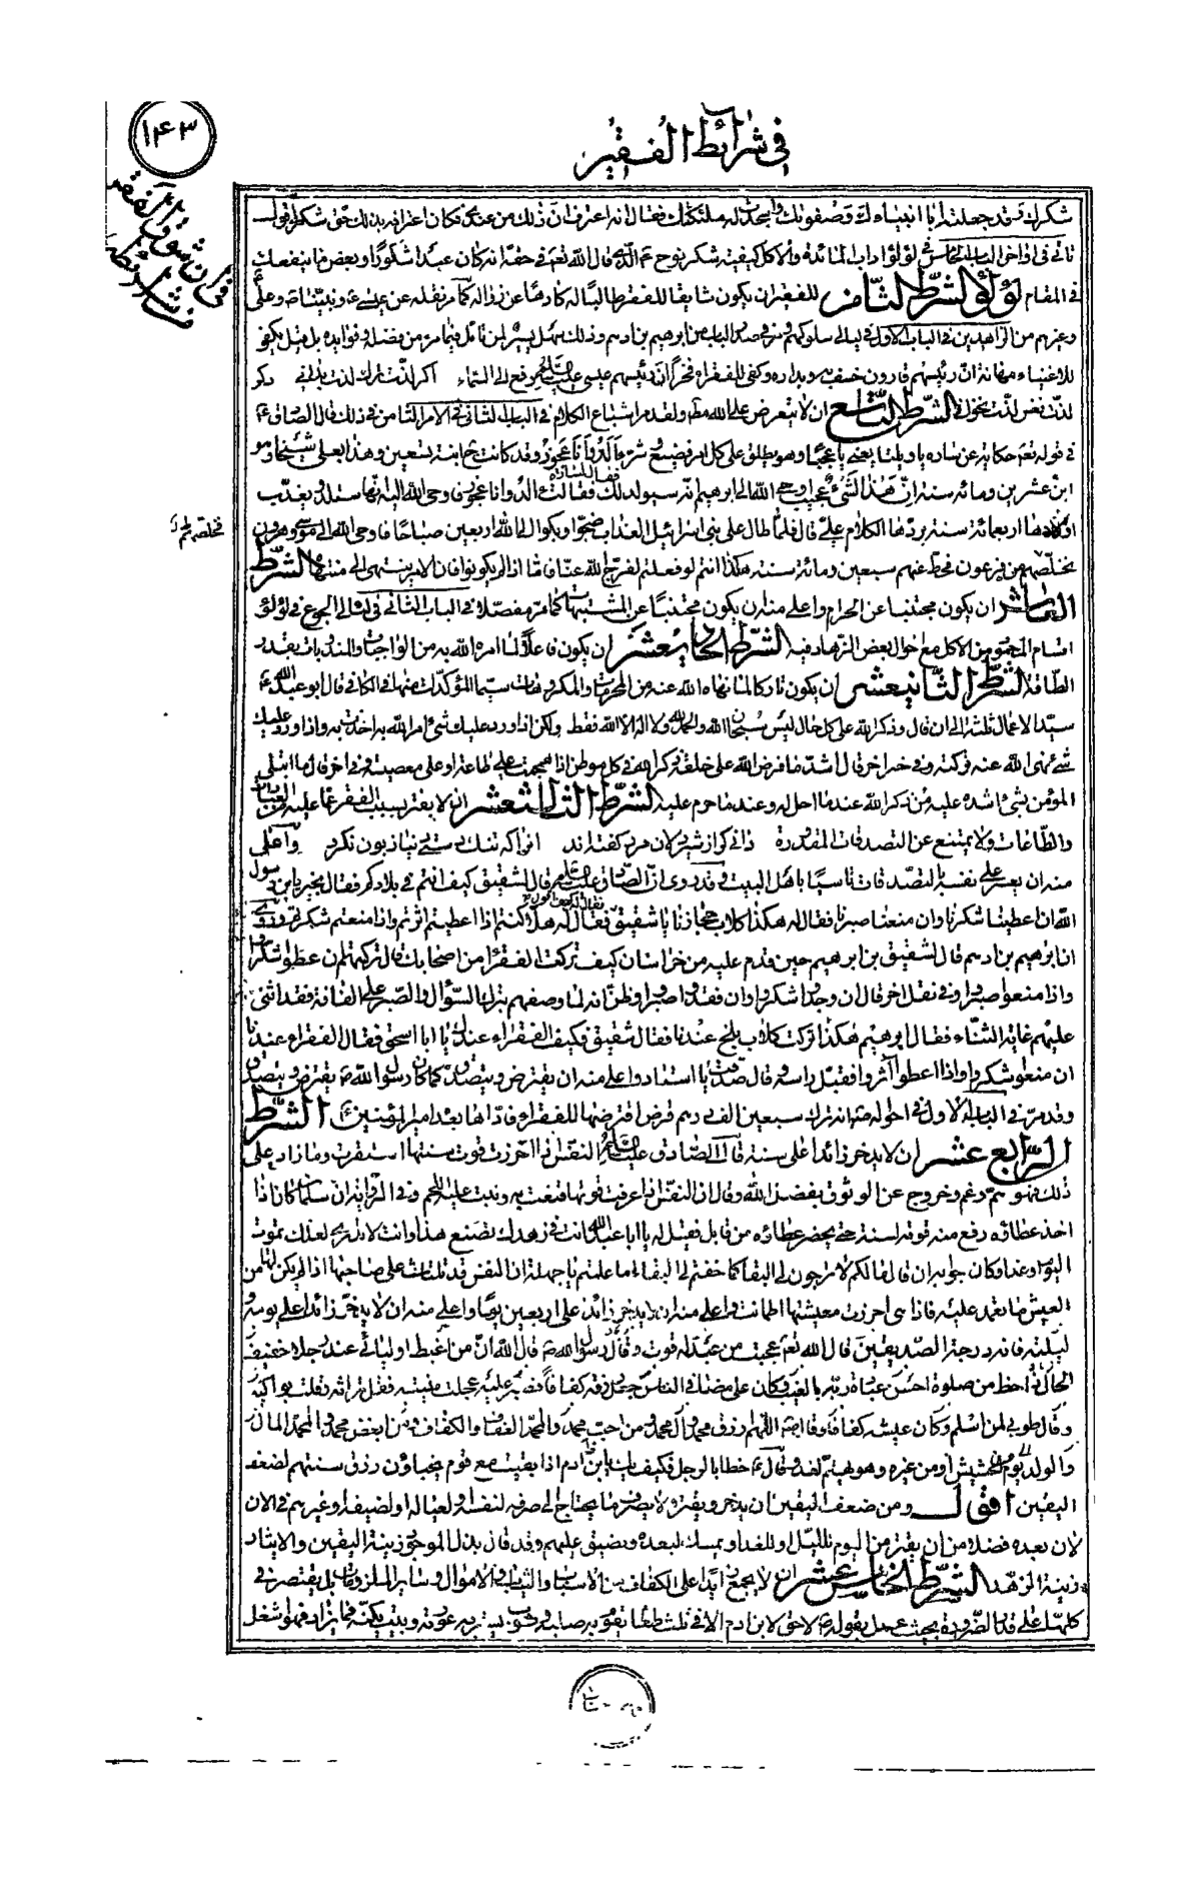 ١٤٣
في شرائط الفقير
شكرك وقد جعلته ابا انبياءك وصفوتك واسجدت له ملئكتك فقال انه اعترف ان ذلك من عندي فكان اعترافه بذلك حق شكره اقول
ثاني في اواخر الباب الخامس في لؤلؤ اداب المائدة والاكل كيفية شكر نوح ع قال الله تعالى في حقه انه كان عبدا شكورا وبعض ما ينفعك
في المقام لؤلؤ الشرط الثامن للفقير ان يكون شايقا للفقر طالبا له كارها عن زواله كما مر نقله عن عيسى ع ونبينا ص وعلي ع
وغيرهم من الزاهدين في الباب الاول في لئالي سلوكهم ومر في صدر الباب عن ابرهيم بن ادهم وذلك سهل يسير لمن تامل فيما مر من فضله وفوايده بل قيل يكفي
للاغنياء مهانة ان رئيسهم قارون خسف به وبداره وكفى للفقراء فخرا ان رئيسهم عيسى عليه السلام رفع الى السماء اكر لذت ترك لذت بداني دكر
لذت نفس لذت نخواني الشرط التاسع ان لا يتعرض على الله ولقد مر اشباع الكلام في الباب الثاني في الامر الثامن في ذلك قال الصادق ع
في قوله تعالى حكاية عن ساره يا ويلتا يعني يا عجبا وهو يطلق على كل امر فضيع ءالد وانا عجوز وقد كانت ح ابنة تسعين وهذا بعلي شيخا وهو
ابن عشرين ومائة سنة ان هذا لشيء عجيب اوحى الله الى ابرهيم انه سيولد لك فقالت ءالد وانا عجوز فاوحى الله اليه انها ستلد ويعذب
اولادها اربعمائة سنة بردها الكلام علي قال فلما طال على بني اسرائيل العذاب ضجوا وبكوا الى الله اربعين صباحا فاوحى الله الى موسى وهرون
يخلصهم من فرعون فحط عنهم سبعين ومائة سنة هكذا انتم لو فعلتم لفرج الله عنا فاما اذا لم يكونوا فان الامر ينتهي الى منتهاه الشرط
العاشر ان يكون مجتنبا عن الحرام واعلى منه ان يكون مجتنبا عن المشتبهات كما مر مفصلا في الباب الثاني في لئالي الجوع في لؤلؤ
اقسام الاكل مع احوال بعض الزهاد فيه الشرط الحاديعشر ان يكون فاعلا لما امره الله به من الواجبات والمندوبات بقدر
الطاقة الشرط الثانيعشر ان يكون تاركا لما نهاه الله عنه من المحرمات والمكروهات سيما المؤكدات منها في الكافي قال ابو عبد الله ع
سيد الاعمال ثلثة الى ان قال وذكر الله على كل حال ليس سبحان الله والحمد لله ولا اله الا الله فقط ولكن اذا ورد عليك شئ امر الله به اخذت به واذا ورد عليك
شئ نهى الله عنه تركته وفي خبر اخر قال اشد ما فرض الله على خلقه ذكر الله في كل موطن اذا هجمت على طاعة او على معصية وفي اخر قال ما ابتلى
المؤمن بشئ اشد عليه من ذكر الله عند ما احل له وعند ما حرم عليه الشرط الثالثعشر ان لا يفتر بسبب الفقر عما عليه من العبادات
والطاعات ولا يمتنع عن التصدقات المقدورة
منه ان يعسر على نفسه بالتصدقات تاسيا باهل البيت وقد روى ان الصادق عليه السلام قال لشقيق كيف انتم في بلادكم فقال بخير يا بن رسول
الله ان اعطينا شكرنا وان منعنا صبرنا فقال له هكذا كلاب حجازنا يا شقيق فقال له هلا كنتم اذا اعطيتم اثرتم واذا منعتم شكرتم وروى
ان ابرهيم بن ادهم قال لشقيق بن ابرهيم حين قدم عليه من خراسان كيف تركت الفقراء من اصحابك قال تركتهم ان اعطوا شكروا
واذا منعوا صبروا وفي نقل اخر قال ان وجدوا شكروا وان فقدوا صبروا وظن انه لما وصفهم بترك السؤال والصبر على الفاقة فقد اثنى
عليهم غاية الثناء فقال ابرهيم هكذا تركت كلاب بلخ عندنا فقال شقيق فكيف الفقراء عندك يا ابا اسحق فقال الفقراء عندنا
ان منعوا شكروا واذا اعطوا اثروا فقبل راسه وقال صدقت يا استاد واعلى منه ان يقترض ويتصدق كما كان رسول الله ص يقترض ويتصدق
وقد مر في الباب الاول في احواله ص انه ترك سبعين الف درهم قرض اقترضها للفقراء فادّاها بعده امير المؤمنين ع الشرط
الرابع عشر ان لا يدخر زائدا على سنة قال الصادق عليه السلام النفس اذا احرزت قوت سنتها استقرت وما زاد على
ذلك فهو وخروج عن الوثوق بفضل الله وقال ان النفس اذا عرفت قوتها قنعت به ونبت عليه اللحم وفي الرواية ان سلمان كان اذا
اخذ عطائه رفع منه قوته لسنته حتى يحضر عطائه من قابل فقيل له يا ابا عبد الله انت في زهدك تصنع هذا وانت لا تدري لعلك تموت
اليوم او غدا فكان جوابه ان قال ما لكم لا ترجون لي البقاء كما خفتم لي الفناء اما علمتم يا جهلة ان النفس قد تلتاث على صاحبها اذا لم يكن لها من
العيش ما تعتمد عليه فاذا هي احرزت معيشتها اطمانت واعلى منه ان لا يدخر زائدا على اربعين يوما واعلى منه ان لا يدخر زائدا على يومه و
ليلته فانه درجة الصديقين قال الله تعالى عجبت من عبد له قوت وقال رسول الله ص قال الله ان من اغبط اوليائي عندي رجلا خفيف
الحال ذا حظ من صلوة احسن عبادة ربه بالغيب وكان غامضا في الناس جعل رزقه كفافا فصبر عليه عجلت منيته فقل تراثه وقلت بواكيه
وقال طوبى لمن اسلم وكان عيشه كفافا وقال اللهم ارزق محمدا وآل محمد ومن احب محمدا وآل محمد العفاف والكفاف وارزق من ابغض محمدا وآل محمد المال
والولد وقال ع خطابا لرجل فكيف بك يا بن ادم اذا بقيت مع قوم يخباؤن رزق سنتهم لضعف
اليقين اقول ومن ضعف اليقين ان يدخر ويقتر ولا يصرف ما يحتاج الى صرفه لنفسه او لعياله او لضيفه او غيرهم في الان
لان بعده فضلا من ان يقتر من اليوم لليل او للغد او يمسك لبعده ويضيق عليهم وقد قال بذل الموجود زينة اليقين والايثار
زينة الزهد الشرط الخامس عشر ان لا يجمع زايدا على الكفاف من الاسباب والثياب والاموال وساير الملزومات بل يقتصر في
كلها على قدر الضرورة بحيث عمل بقوله ع لا حق لابن ادم الا في ثلث طعام يقوم به صلبه وثوب يستر به عورته وبيت يكنه فما زاد فهو شغل